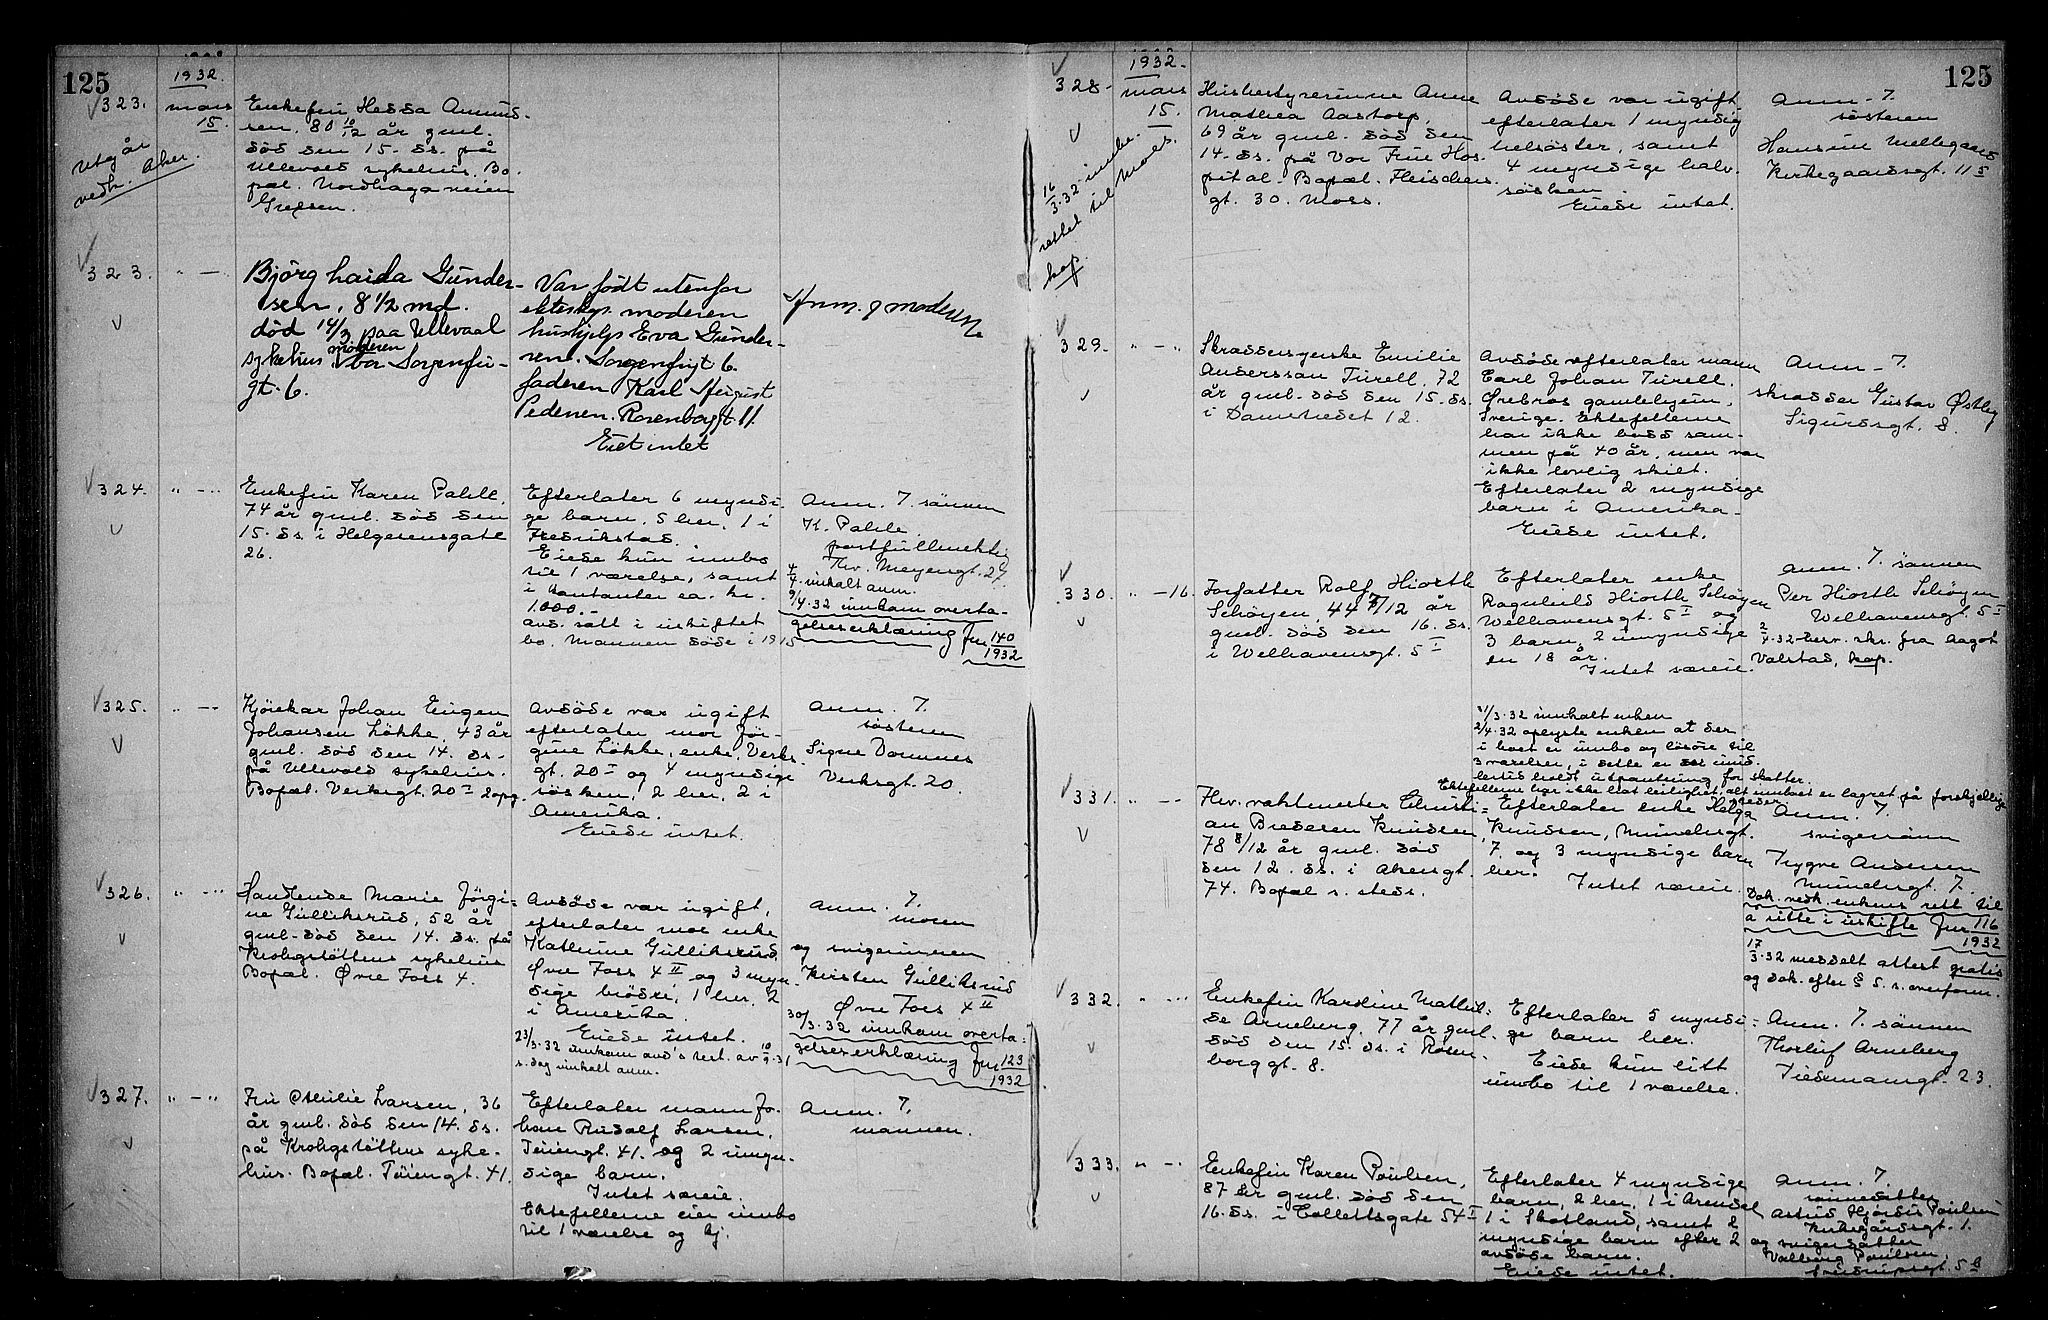 125
1932
323. mars
15.
Utgår
vedk. Aker.
Enkefru Hedda Amund-
sen. 80 10/12 år gml.
død den 15. ds. på
Ullevold sykehus. Bo-
pæl. Nordhagaveien
Grefsen.
323. " —
Bjørg Laida Gunder-
sen, 8 1/2 md.
død 14/3 paa Ullevaal
sykehus moderen bor Sorgenfri-
gt. 6.
Var født utenfor
ekteskap. moderen
hushjelp Eva Gunder-
sen. Sorgenfrigt 6.
faderen Karl August
Pedersen. Rosenborggt 11.
Eiet intet
Anm. af moderen
324. " — "
Enkefru Karen Pahle,
74 år gml. død den
15. ds. i Helgesensgate
26.
Efterlater 6 myndi-
ge barn, 5 her, 1 i
Fredrikstad.
Eiede kun innbo
til 1 værelse, samt
i kontanter ca. kr.
1.000.-
avd. satt i uskiftet
bo. Mannen døde i 1915
Anm. 7. sønnen
K. Pahle
postfullmektig
Thv. Meyersgt. 27.
4/4. innkalt anm.
9/4.32 innkom overta-
gelseserklæring Jnr 140
1932
325. " — "
Kjørekar Johan Eugen
Johansen Løkke, 43 år
gml. død den 14. ds.
på Ullevold sykehus.
Bopæl. Verksgt. 20 I 2 opg.
Avdøde var ugift
efterlater mor Jør-
gine Løkke, enke, Verks-
gt. 20 I og 4 myndige
søsken, 2 her, 2 i
Amerika.
Eiede intet.
Anm. 7.
søsteren
Signe Domnes
Verksgt. 20.
326. " — "
Handlende Marie Jørgi-
ne Gulliksrud, 52 år
gml. død den 14. ds. på
Krohgstøttens sykehus
Bopæl. Øvre Foss 4.
Avdøde var ugift,
efterlater mor enke
Kathrine Gulliksrud
Øvre Foss 4 II og 3 myn-
dige brødre, 1 her, 2
i Amerika.
Eiede intet.
23/3.32 innkom avd's test. av 10/9.31
s. dag innkalt anm.
Anm. 7.
moren
og svigerinnen
Kirsten Gulliksrud
Øvre Foss 4 II
30/3.32 innkom overta-
gelseserklæring Jnr 123
1932
327. " — "
Fru Otilie Larsen, 36
år gml. død den 14. ds.
på Krohgstøttens syke-
hus. Bopæl. Tøiengt. 41.
Efterlater mann Jo-
han Rudolf Larsen,
Tøiengt. 41. og 2 umyn-
dige barn.
Intet særeie.
Ektefellene eier innbo
til 1 værelse og kj.
125
1932.
328. mars
15.
16/3.32 innbe-
rettet til Moss.
kop.
Husbestyrerinne Anne
Mathea Aastorp,
69 år gml. død den
14. ds. på Vor Frue Hos-
pital. Bopæl. Fleischers-
gt. 30. Moss.
Avdøde var ugift
efterlater 1 myndig
helsøster, samt
4 myndige halv-
søsken.
Eiede intet.
Anm. 7.
søsteren
Hansine Mellegaard
Kirkegaardsgt. 11 5
329. " — "
Skreddersyerske Emilie
Anderssan Turell, 72
år gml. død den 15. ds.
i Damstredet 12.
Avdøde efterlater mann
Carl Johan Turell,
Ørebros gamlehjem,
Sverige. Ektefellene
har ikke bodd sam-
men på 40 år, men var
ikke lovlig skilt.
Efterlater 2 myndige
barn i Amerika.
Eiede intet.
Anm. 7.
skredder Gustav Østby
Sigurdsgt. 8.
330. " — 16.
Forfatter Rolf Hiorth
Schøyen, 44 7/12 år
gml. død den 16. ds.
i Welhavensgt. 5 I
Efterlater enke
Ragnhild Hiorth Schøyen
Welhavensgt. 5 I og
3 barn, 2 umyndige
en 18 år.
Intet særeie.
31/3.32 innkalt enken
2/4.32 oplyste enken at der
i boet er innbo og løsøre til
3 værelser, i dette er det imid-
lertid holdt utpantning for skatter.
Ektefellene har ikke hat leilighet, alt innboet er lagret på forskjellige
steder
Anm. 7. sønnen
Per Hiorth Schøyen
Welhavensgt. 5 I
2/4.32 besv. skr. fra Aagot
Valstad, kop.
331. " — "
Fhv. vaktmester Christi-
an Brederen Knudsen,
78 8/12 år gml. død
den 12. ds. i Akersgt.
74. Bopæl s. steds.
Efterlater enke Helga
Knudsen, Munchsgt.
7. og 3 myndige barn
her.
Intet særeie.
Anm. 7.
svigersønn
Trygve Andersen
Munchsgt. 7.
Dok. vedk. enkens rett til
å sitte i uskifte Jnr 116
1932
17/3.32 meddelt attest gratis
og dok. efter § 5. s. overform.
332. " — "
Enkefru Karoline Mathil-
de Arneberg, 77 år gml.
død den 15. ds. i Rosen-
borggt. 8.
Efterlater 5 myndi-
ge barn her.
Eiede kun litt
innbo til 1 værelse.
Anm. 7. sønnen
Thorleif Arneberg
Tidemannsgt. 23.
333. " — "
Enkefru Karen Poulsen,
87 år gml. død den
16. ds. i Collettsgate 54 I
Efterlater 4 myndige
barn, 2 her, 1 i Arendal
1 i Skotland, samt 2
myndige barn efter 2
avdøde barn.
Eiede intet.
Anm. 7.
sønnedatter
Astrid Hjørdis Poulsen
Kirkegårdsgt. 1.
og svigerdatter
Valborg Poulsen,